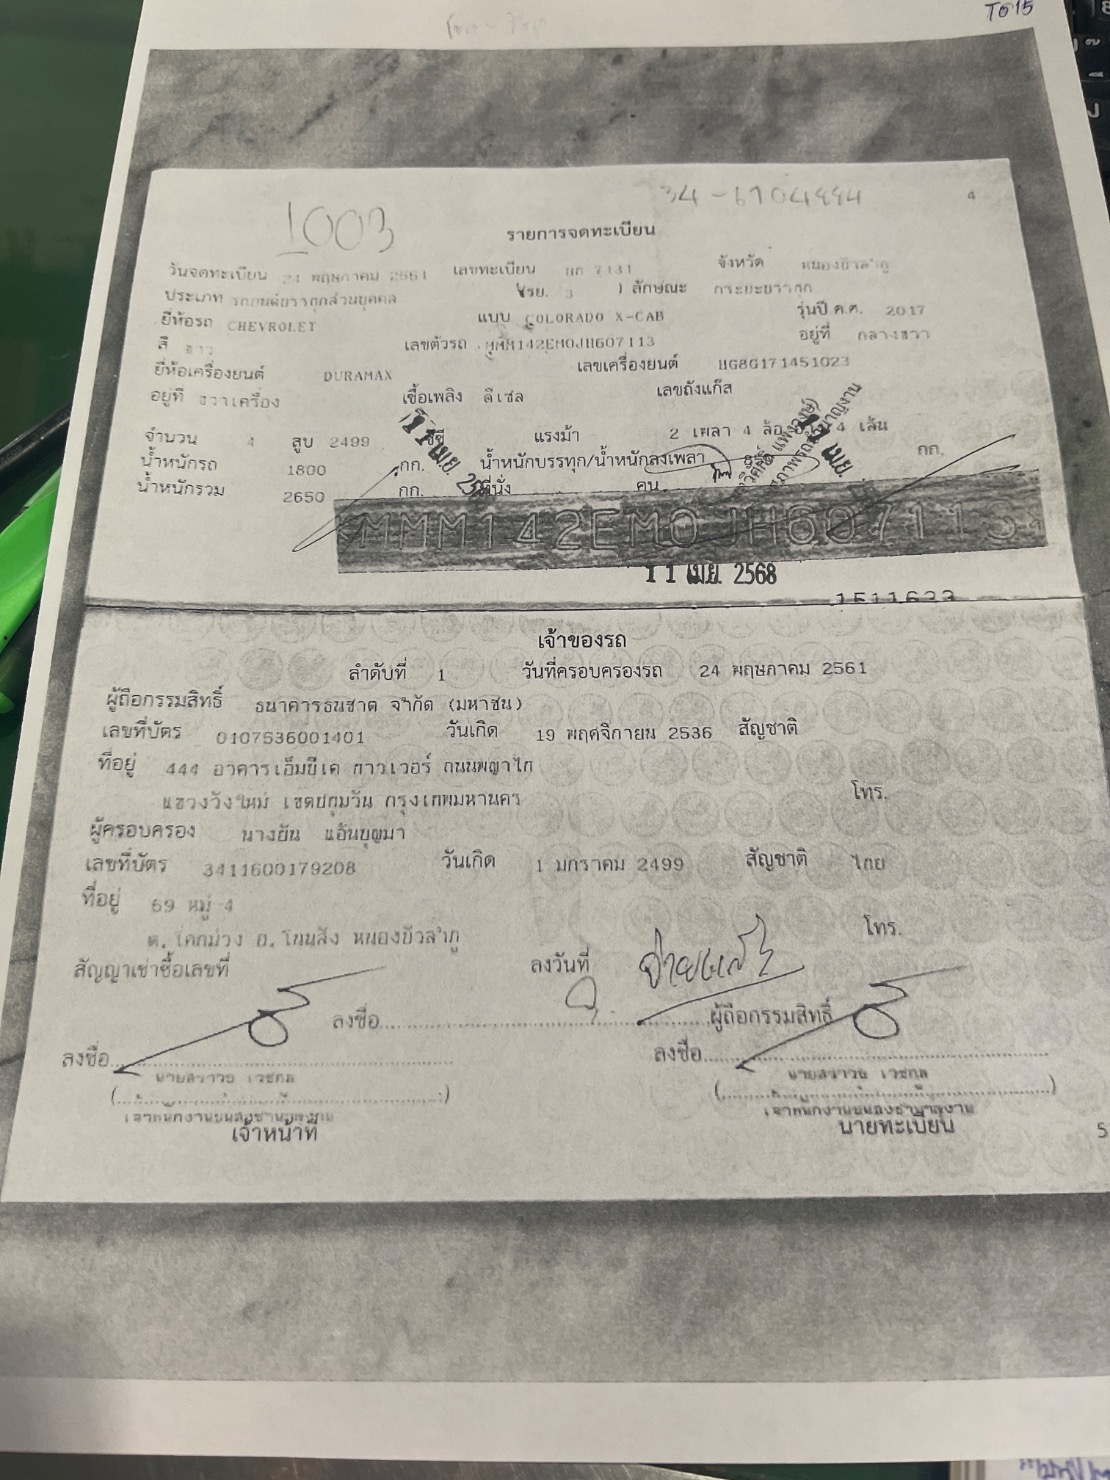 T615
1003
34-6704884
4
รายการจดทะเบียน
วันจดทะเบียน 24 พฤษภาคม 2561 เลขทะเบียน 7131 จังหวัด หนองบัวลำภู
ประเภท รถยนต์บรรทุกส่วนบุคคล (รย. 3 ) ลักษณะ กระบะบรรทุก
ยี่ห้อรถ CHEVROLET แบบ COLORADO X-CAB รุ่นปี ค.ศ. 2017
สี ขาว เลขตัวรถ MMM142EM0JH607113 อยู่ที่ กลางขวา
ยี่ห้อเครื่องยนต์ DURAMAX เลขเครื่องยนต์ HG8G171451023
อยู่ที่ ขวาเครื่อง เชื้อเพลิง ดีเซล เลขถังแก๊ส
จำนวน 4 สูบ 2499 ซีซี แรงม้า 2 เพลา 4 ล้อ 4 เส้น
น้ำหนักรถ 1800 กก. น้ำหนักบรรทุก/น้ำหนักลงเพลา กก.
น้ำหนักรวม 2650 กก. ที่นั่ง คน
MMM142EM0JH607113
11 เม.ย. 2568
1511633
เจ้าของรถ
ลำดับที่ 1 วันที่ครอบครองรถ 24 พฤษภาคม 2561
ผู้ถือกรรมสิทธิ์ ธนาคารธนชาต จำกัด (มหาชน)
เลขที่บัตร 0107536001401 วันเกิด 19 พฤศจิกายน 2536 สัญชาติ
ที่อยู่ 444 อาคารเอ็มบีเค ทาวเวอร์ ถนนพญาไท
แขวงวังใหม่ เขตปทุมวัน กรุงเทพมหานคร โทร.
ผู้ครอบครอง นางยัน แอ้นบุญมา
เลขที่บัตร 3411600179208 วันเกิด 1 มกราคม 2499 สัญชาติ ไทย
ที่อยู่ 69 หมู่ 4
ต.โคกม่วง อ.โนนสัง หนองบัวลำภู โทร.
สัญญาเช่าซื้อเลขที่ ลงวันที่
ลงชื่อ ผู้ถือกรรมสิทธิ์
ลงชื่อ ลงชื่อ
เจ้าพนักงานขนส่งชำนาญงาน เจ้าพนักงานขนส่งชำนาญงาน
เจ้าหน้าที่ นายทะเบียน
5